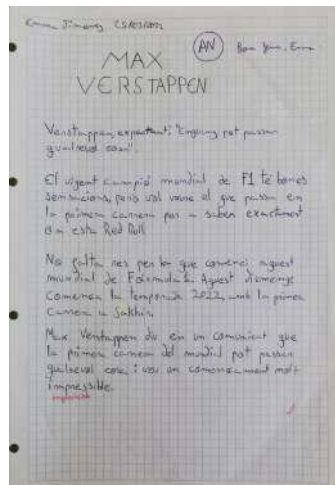 Jimenez
AN
Bon Emma
MAX
VERSTAPPEN
Verstappen, expectant: "Enguany pot passar
qualsevol cosa".
El vigent campió mundial de F1 té bones
sensacions, però vol veure el que passa en
la primera carrera per a saber exactament
on esta Red Bull
No falta res per que comenci aquest
mundial de Fórmula 1. Aquest diumenge
comença la temporada 2022, amb la primera
carrera a Sakhir.
Max Verstappen diu en un comunicat que
la primera carrera del mundial pot passar
qualsevol cosa i veu un començament molt
impressible.